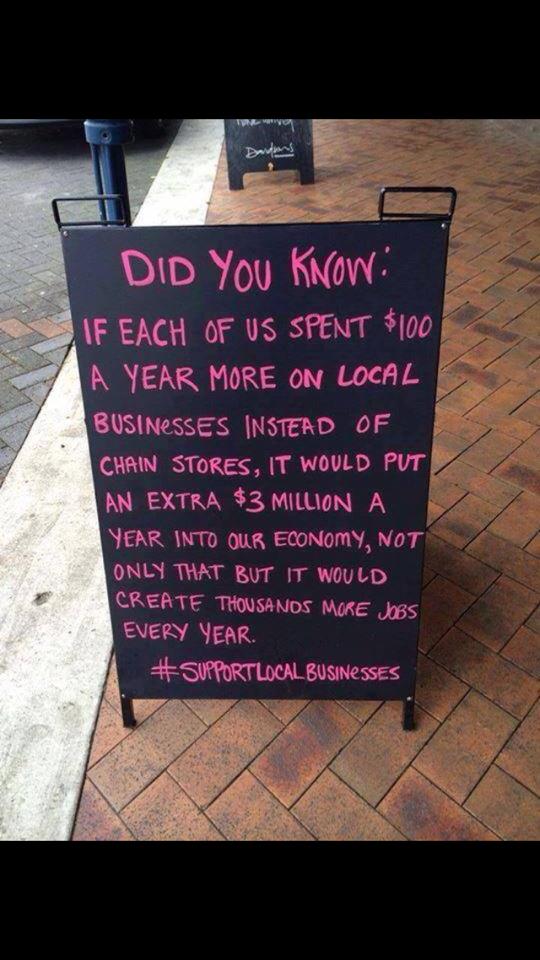 Dandjans
DID YOU KNOW:
IF EACH OF US SPENT $100
A YEAR MORE ON LOCAL
BUSINESSES INSTEAD OF
CHAIN STORES, IT WOULD PUT
AN EXTRA $3 MILLION A
YEAR INTO OUR ECONOMY, NOT
ONLY THAT BUT IT WOULD
CREATE THOUSANDS MORE JOBS
EVERY YEAR.
#SUPPORTLOCALBUSINESSES